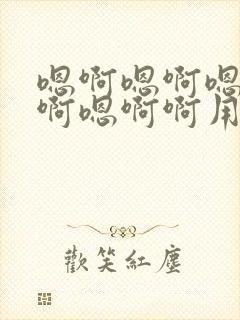 嗯啊嗯啊嗯
啊嗯啊啊用
歡笑紅塵